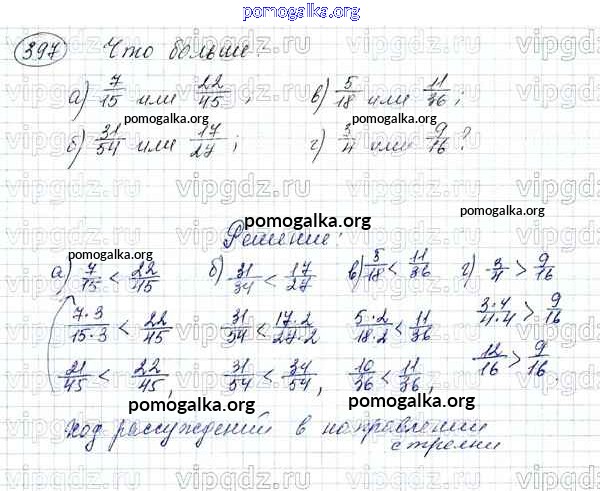 pomogalka.org
397 Что больше:
а) 7/15 или 22/45; в) 5/18 или 11/36;
pomogalka.org pomogalka.org
б) 31/54 или 17/27; г) 3/4 или 9/16?
pomogalka.org pomogalka.org
Решение:
а) 7/15 < 22/45 б) 31/34 < 17/27 в) 5/18 < 11/36 г) 3/4 > 9/16
7·3/15·3 < 22/45 31/54 < 17·2/27·2 5·2/18·2 < 11/36 3·4/4·4 > 9/16
21/45 < 22/45, 31/54 < 34/54, 10/36 < 11/36, 12/16 > 9/16.
pomogalka.org pomogalka.org
Ход рассуждений в направлении
стрелки
pomogalka.org
vipgdz.ru